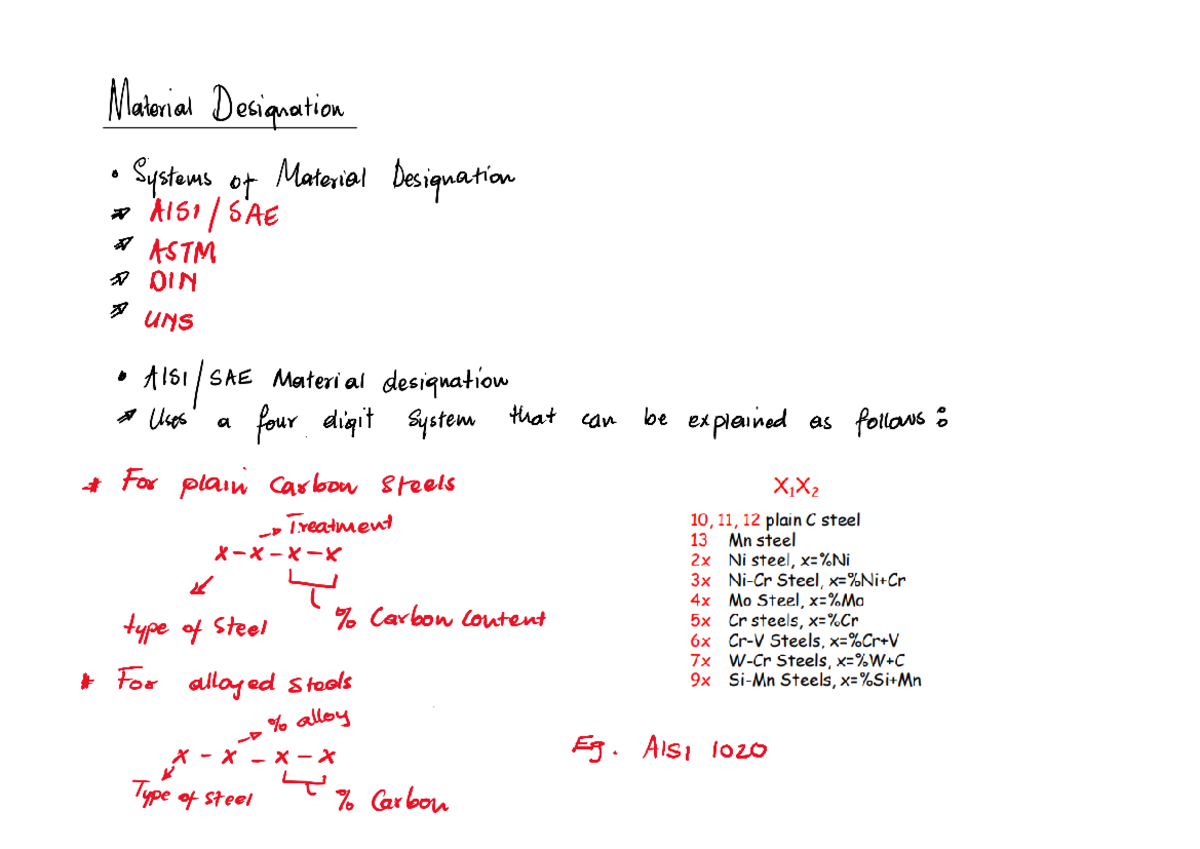 Material Designation
• Systems of Material Designation
AISI/SAE
ASTM
DIN
UNS
• AISI/SAE Material designation
Uses a four digit system that can be explained as follows:
* For plain Carbon Steels
Treatment
X-X-X-X
type of Steel
% Carbon Content
* For alloyed Steels
% alloy
X - X - X - X
Type of Steel
% Carbon
X₁X₂
10, 11, 12 plain C steel
13 Mn steel
2x Ni steel, x=%Ni
3x Ni-Cr Steel, x=%Ni+Cr
4x Mo Steel, x=%Mo
5x Cr steels, x=%Cr
6x Cr-V Steels, x=%Cr+V
7x W-Cr Steels, x=%W+C
9x Si-Mn Steels, x=%Si+Mn
Eg. AISI 1020